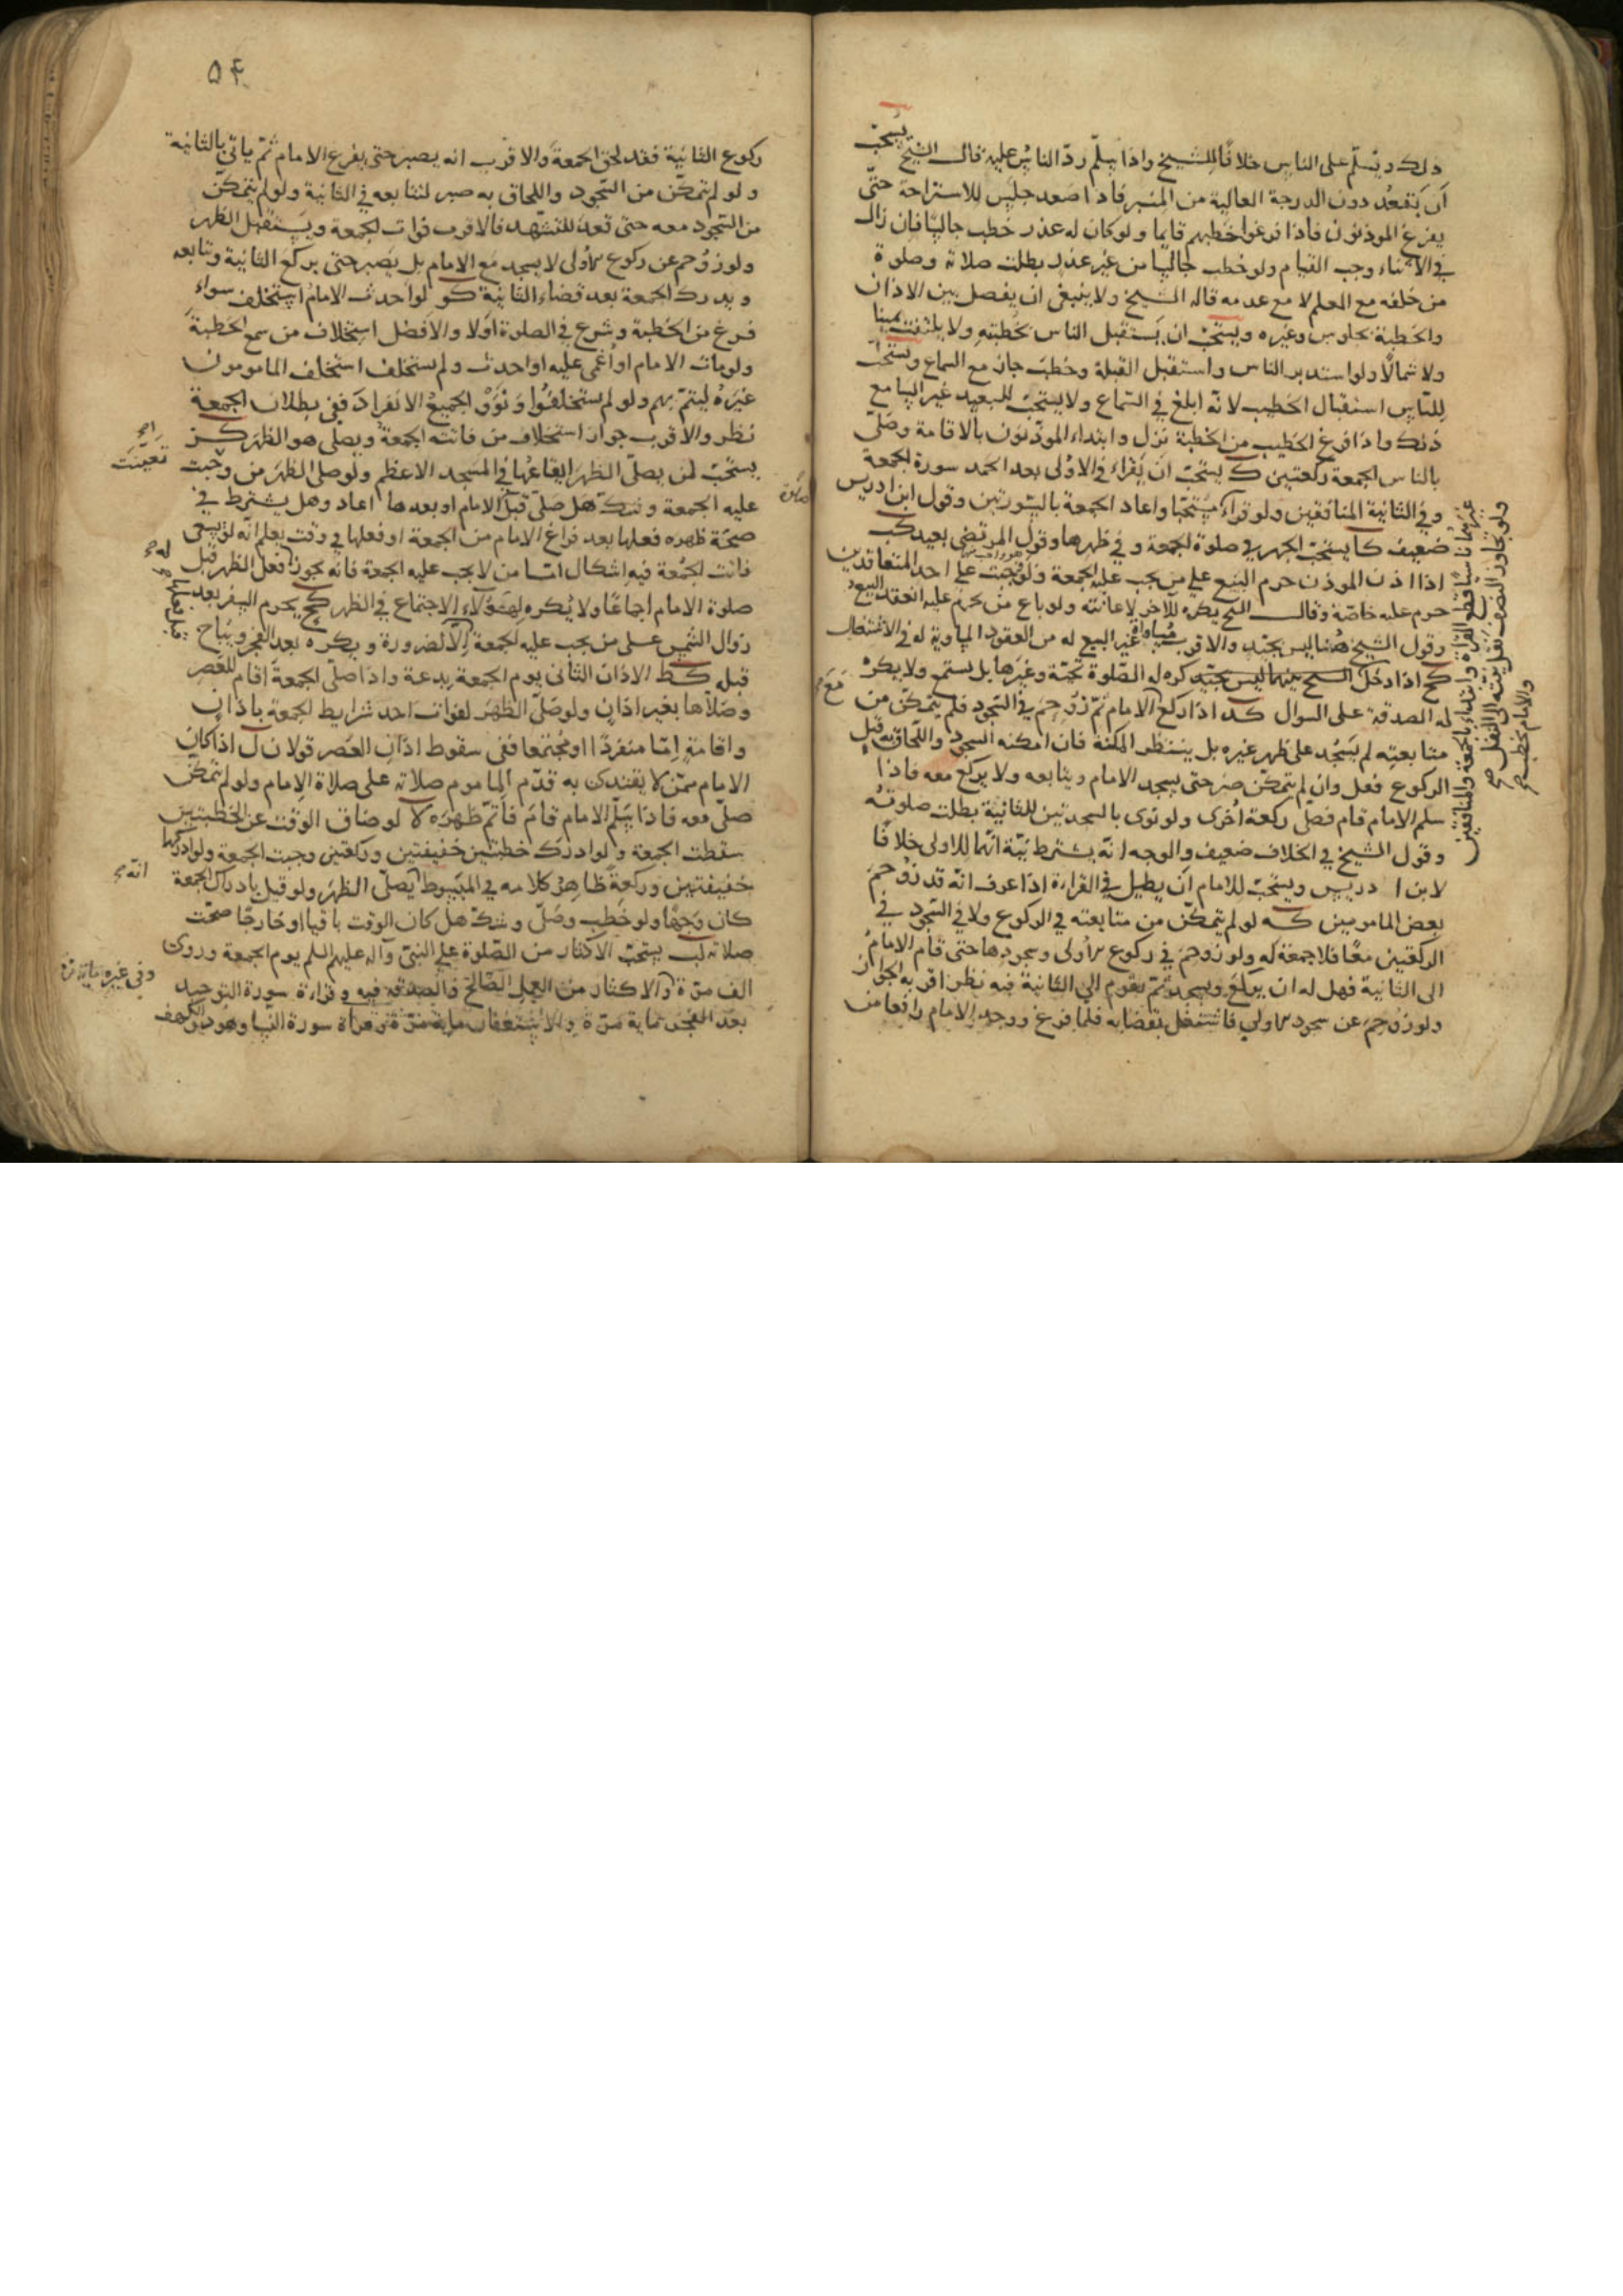 ذلك ويسلم على الناس خلافا للشيخ واذا سلم رد الناس عليه قال الشيخ يستحب
ان يقعد دون الدرجة العالية من المنبر فاذا صعد جلس للاستراحة حتى
يفرغ الموذنون فاذا فرغوا خطبهم قايما ولو كان له عذر خطب جالسا فان زال
في الاثناء وجب القيام ولو خطب جالسا من غير عذر بطلت صلاته وصلوة
من خلفه مع العلم لا مع عدمه قاله الشيخ ولا ينبغي ان يفصل بين الاذان
والخطبة بجلوس وغيره ويستحب ان يستقبل الناس بخطبته ولا يلتفت يمينا
ولا شمالا ولو استدبر الناس واستقبل القبلة وخطب جاز مع السماع ويستحب
للناس استقبال الخطيب لانه ابلغ في السماع ولا يستحب للبعيد غير السامع
ذلك واذا فرغ الخطيب من الخطبة نزل وابتداء الموذنون بالاقامة وصلى
بالناس الجمعة ركعتين ك يستحب ان يقراء في الاولى بعد الحمد سورة الجمعة
وفي الثانية المنافقين ولو قراء مستحبا واعاد الجمعة بالسورتين وقول ابن ادريس
ضعيف كا يستحب الجهر في صلوة الجمعة وفي ظهرها وقول المرتضى بعيد كب
اذا اذن الموذن حرم البيع على من يجب عليه الجمعة ولو وجبت على احد المتعاقدين
حرم عليه خاصة وقال الشيخ يكره للآخر لاعانته ولو باع من يحرم عليه انعقد البيع
وقول الشيخ هنا ليس بجيد والاقرب مساواة غير البيع له من العقود المساوية له في الاشتغال
كج اذا دخل كره له الصلوة تحية وغيرها بل يستمع ولا يكره
له الصدقة على السوال كد اذا ركع الامام ثم زوحم في السجود فلم يتمكن من
متابعته لم يسجد على ظهر غيره بل ينتظر المكنة فان امكنه السجود واللحاق به قبل
الركوع فعل وان لم يتمكن صبر حتى يسجد الامام ويتابعه ولا يركع معه فاذا
سلم الامام قام فصلى ركعة اخرى ولو نوى بالسجدتين للثانية بطلت صلوته
وقول الشيخ في الخلاف ضعيف والوجه انه يشترط نية انهما للاولى خلافا
لابن ادريس ويستحب للامام ان يطيل في القراءة اذا عرف انه قد زوحم
بعض المامومين كه لو لم يتمكن من متابعته في الركوع ولا في السجود في
الركعتين معا فلا جمعة له ولو زوحم في ركوع الاولى وسجودها حتى قام الامام
الى الثانية فهل له ان يركع ويسجد ثم يقوم الى الثانية فيه نظر اقربه الجواز
ولو زوحم عن سجود الاولى فاشتغل بقضايه فلما فرغ ووجد الامام رافعا من
غيرهما ناسيا قطع القراءة وابتداء بالجمعة والمنافقين
ولو تجاوز النصف نقل نيته الى النفل صح
والامام يخطب صح
۵۴
ركوع الثانية فقد لحق الجمعة والاقرب انه يصبر حتى يفرغ الامام ثم ياتي بالثانية
ولو لم يتمكن من السجود واللحاق به صبر لمتابعه في الثانية ولو لم يتمكن
من السجود معه حتى قعد للتشهد فالاقرب فوات الجمعة ويستقبل الظهر
ولو زوحم عن ركوع الاولى لا يسجد مع الامام بل يصبر حتى يركع الثانية ويتابعه
ويدرك الجمعة بعد قضاء الثانية كو لو احدث الامام استخلف سواء
فرغ من الخطبة وشرع في الصلوة اولا والافضل استخلاف من سمع الخطبة
ولو مات الامام او اغمى عليه او احدث ولم يستخلف استخلف المامومون
غيره ليتم بهم ولو لم يستخلفوا ونوى الجميع الانفراد ففي بطلان الجمعة
نظر والاقرب جواز استخلاف من فاتته الجمعة ويصلي هو الظهر كز
يستحب لمن يصلي الظهر ايقاعها في المسجد الاعظم ولو صلى الظهر من وجبت
عليه الجمعة وشك هل صلى قبل الامام او بعدها اعاد وهل يشترط في
صحة ظهره فعلها بعد فراغ الامام من الجمعة او فعلها في وقت يعلم انه لو سعى
فاتت الجمعة فيه اشكال اما من لا يجب عليه الجمعة فانه يجوز له فعل الظهر قبل
صلوة الامام اجماعا ولا يكره لهؤلاء الاجتماع في الظهر كح يحرم السفر بعد
زوال الشمس على من يجب عليه الجمعة الا لضرورة ويكره بعد الفجر ويباح
قبله كط الاذان الثاني يوم الجمعة بدعة واذا صلى الجمعة اقام للعصر
وصلاها بغير اذان ولو صلى الظهر لفوات احد شرايط الجمعة باذان
واقامة اما منفردا او مجتمعا ففي سقوط اذان العصر قولان ل اذا كان
الامام ممن لا يقتدى به قدم الماموم صلاته على صلاة الامام ولو لم يتمكن
صلى معه فاذا سلم الامام قام فاتم ظهره لا لو ضاق الوقت عن الخطبتين
سقطت الجمعة ولو ادرك خطبتين خفيفتين وركعتين وجبت الجمعة ولو ادركها
خفيفتين وركعة ظاهر كلامه في المبسوط يصلي الظهر ولو قيل بادراك الجمعة
كان وجها ولو خطب وصلى وشك هل كان الوقت باقيا او خارجا صحت
صلاته لب يستحب الاكثار من الصلوة على النبي وآله عليهم السلم يوم الجمعة وروى
الف مرة والاكثار من العمل الصالح والصدقة فيه وقراءة سورة التوحيد
بعد الفجر ماية مرة والاستغفار ماية مرة وقراءة سورة النسا وهود والكهف
تعينت
قبل فعلها
انه
وفي غيره ماية مرة